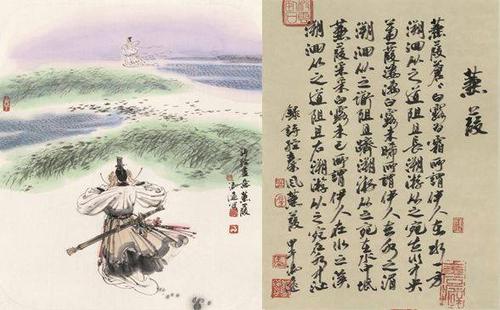 詩經畫意蒹葭
蒹葭
蒹葭蒼〻白露為霜所謂伊人在水一方
溯洄從之道阻且長溯游從之宛在水中央
蒹葭淒〻白露未晞所謂伊人在水之湄
溯洄從之道阻且躋溯游從之宛在水中坻
蒹葭采采白露未已所謂伊人在水之涘
溯洄從之道阻且右溯游從之宛在水中沚
錄詩經秦風蒹葭